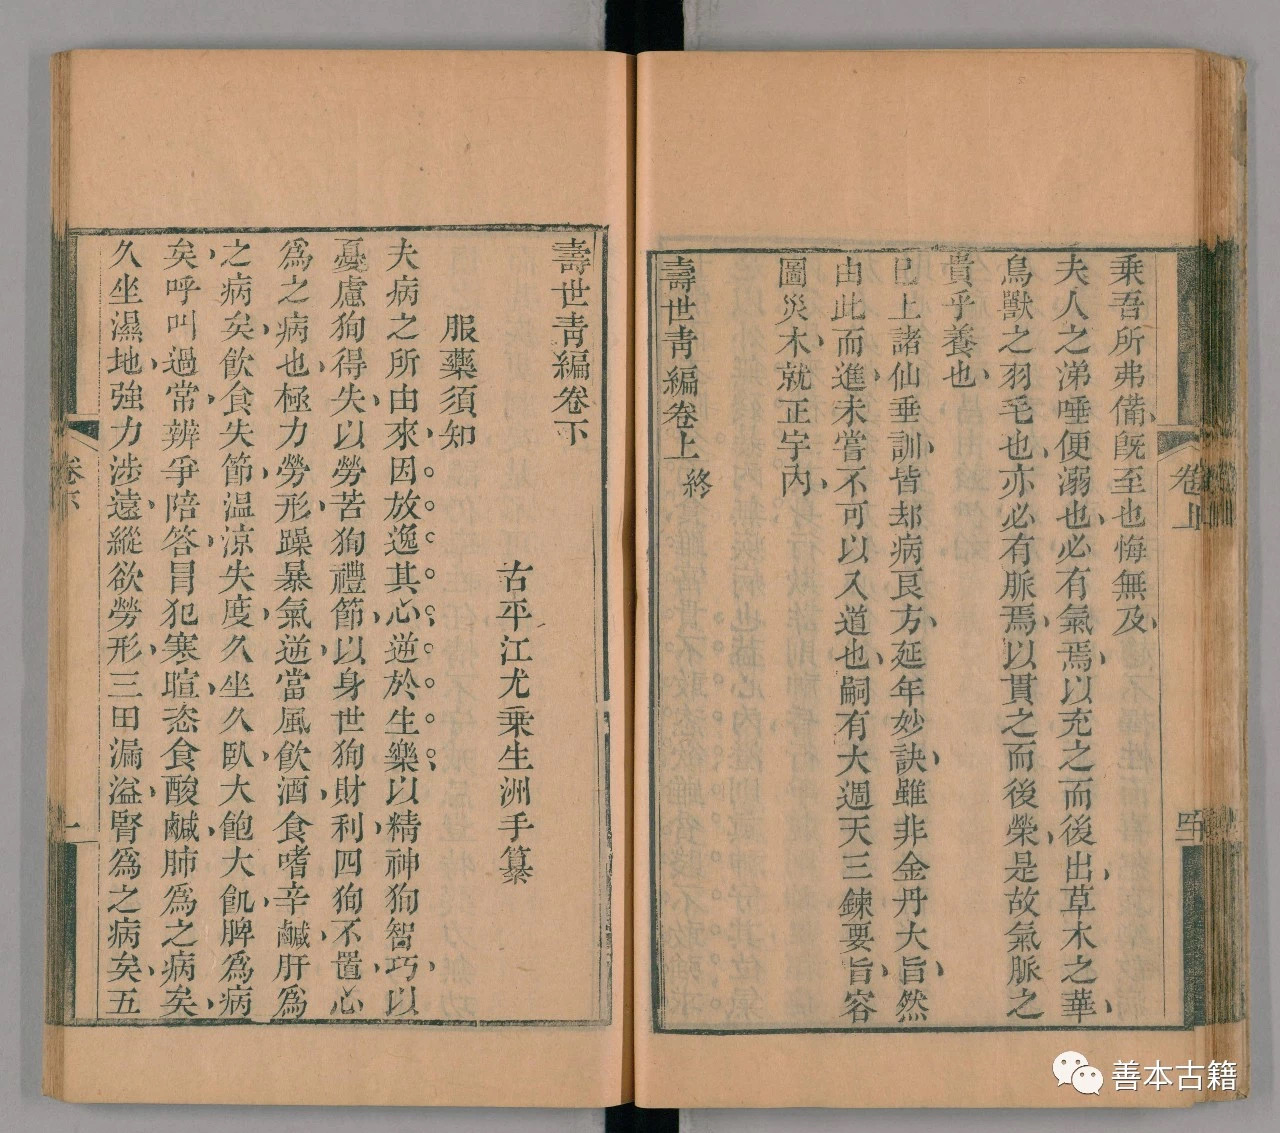 乘吾所弗備既至也悔無及
夫人之涕唾便溺也必有氣焉以充之而後出草木之華
鳥獸之羽毛也亦必有脈焉以貫之而後榮是故氣脈之
貴乎養也
已上諸仙垂訓皆却病良方延年妙訣雖非金丹大旨然
由此而進未嘗不可以入道也嗣有大週天三鍊要旨容
圖災木就正宇內
壽世青編卷上 終
卷上
壽世青編卷下
古平江尤乘生洲手纂
服藥須知
夫病之所由來因放逸其心逆於生樂以精神狥智巧以
憂慮狥得失以勞苦狥禮節以身世狥財利四狥不置心
爲之病也極力勞形躁暴氣逆當風飲酒食嗜辛鹹肝爲
之病矣飲食失節温涼失度久坐久臥大飽大飢脾爲病
矣呼叫過常辨爭陪答冒犯寒暄恣食酸鹹肺爲之病矣
久坐濕地強力涉遠縱欲勞形三田漏溢腎爲之病矣五
卷下
一
善本古籍